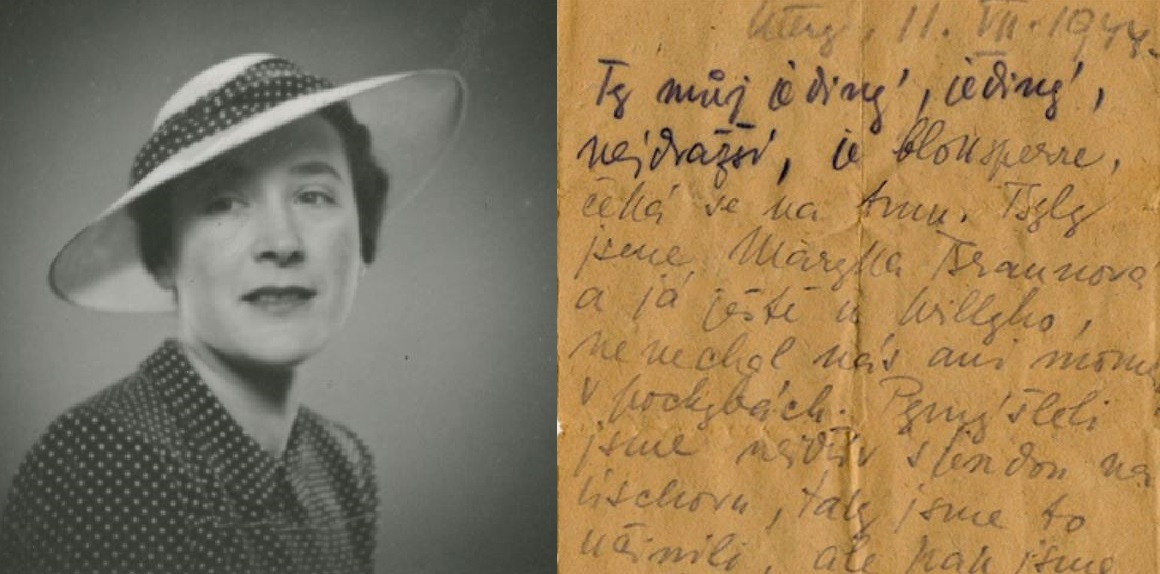 úterý, 11. VII. 1944.
Ty můj jediný, jediný,
nejdražší, je bloksperre,
čeká se na tmu. Byly
jsme Mařka Braunová
a já ještě u Willyho,
nenechal nás ani mom
v pochybách.
jsme nejdřív s na
, tak jsme to
učinili, ale pak jsme